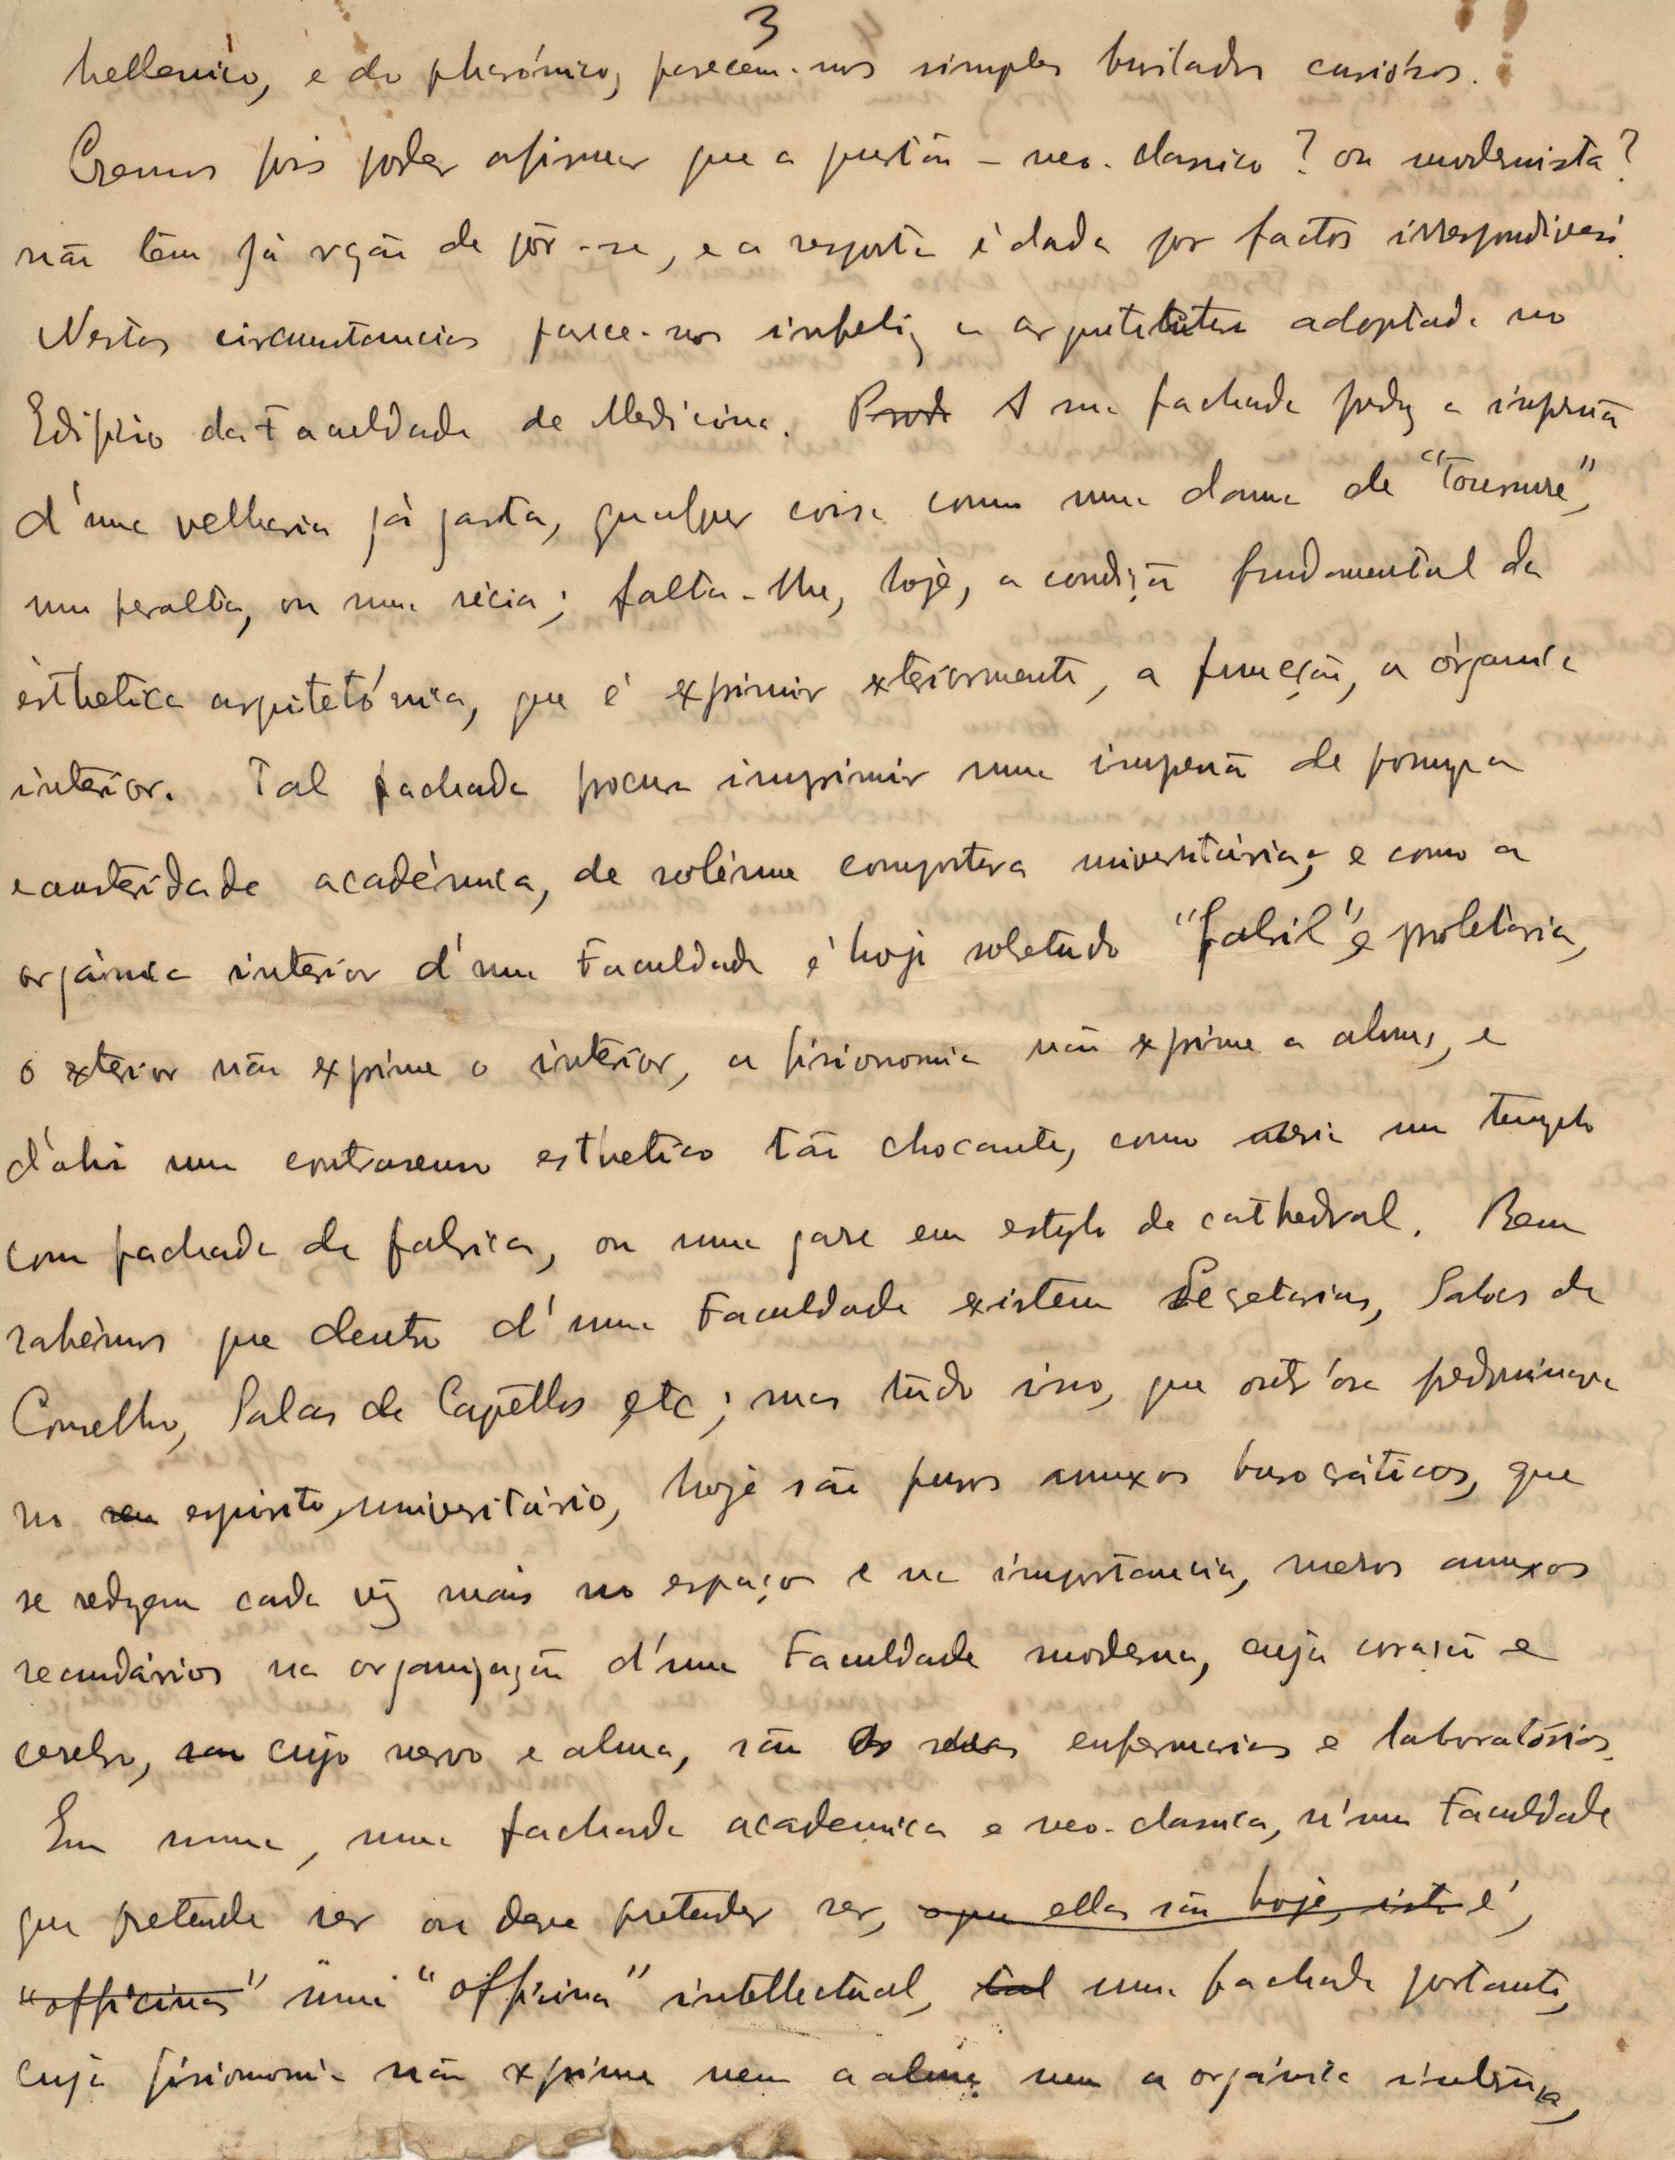 3
hellenico, e do pharónico, parecem-nos simples burilados curiósos.
Cremos pois poder afirmar que a questão – neo-classico? ou modernista?
não têm já razão de pôr-se, e a resposta é dada por factos irrespondiveis.
Nestas circunstancias parece-nos infeliz a arquitetutura adoptada no
Edificio da Faculdade de Medicina. Prod A sua fachada produz a impressão
d'uma velharia já gasta, qualquer coisa como uma dama de "Tournure",
um peralta, ou uma sécia; falta-lhe, hoje, a condição fundamental da
ésthetica arquitetónica, que é exprimir exteriormente, a funcção, a órganica
interior. Tal fachada procura imprimir uma impressão de pompa
e austeridade académica, de solémne compostura universitária, e como a
orgánica interior d'uma Faculdade é hoje sobretudo "fabril" e proletária,
o exterior não exprime o interior, a fisionomia não exprime a alma, e
d'ahi um contrasenso esthetico tão chocante, como seria um templo
com fachada de fabrica, ou uma gare em estylo de cathedral. Bem
sabêmos que dentro d'uma Faculdade existem Secretarias, Salas de
Conselho, Salas de Capêllos etc; mas tudo isso, que outr'ora predominava
no seu espirito universitário, hoje são puros anexos burocráticos, que
se reduzem cada vez mais no espaço e na importancia, meros anexos
secundários na organização d'uma Faculdade moderna, cuja coração e
cerebro, sua cujo nervo e alma, são as suas enfermarias e laboratórios.
Em suma, uma fachada academica e neo-classica, n'uma Faculdade
que pretende ser ou deve pretender ser, o que ellas são hoje, isto é,
"officinas" uma "officina" intellectual, tal uma fachada portanto,
cuja fisionomia não exprime nem a alma nem a orgánica interna,